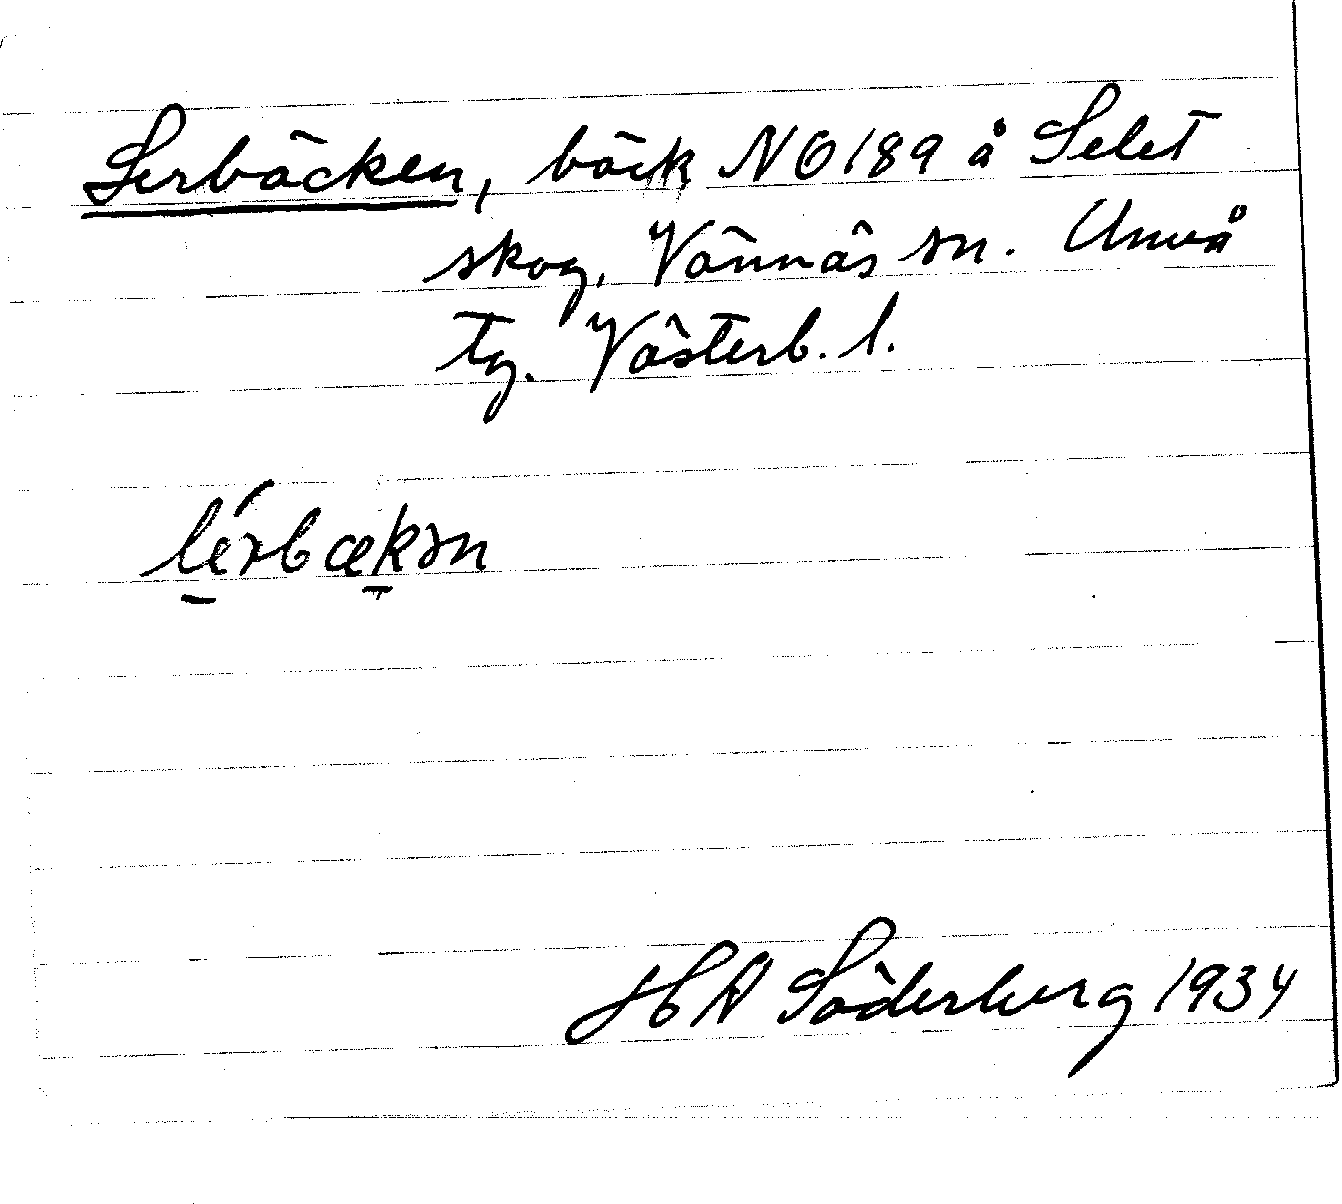 Lerbäcken, bäck NO 189 å Selet
skog, Vännäs sn. Umeå
tg. Västerb. l.
lérbækən
HA Söderberg 1934